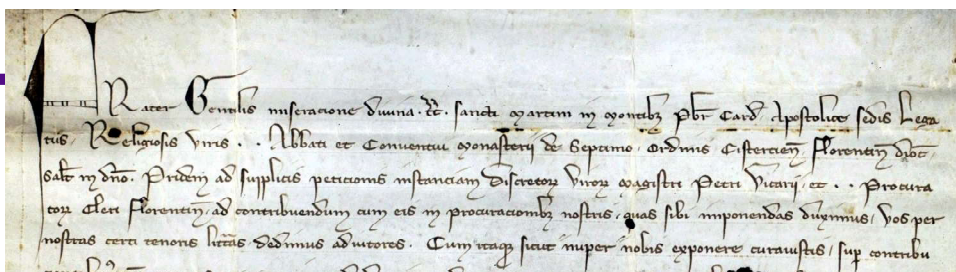 Frater Gentilis miseracione divina tt. sancti Martini in Montibz Pbr Card Apostolice sedis Lega
tus, Religiosis viris . . Abbati et Conventui Monasterii de Septimo, ordinis Cistercien, Florentin dioc,
salt in dno. Pridem ad supplicis peticionis instanciam discretor viror Magistri Petri Vicarii, et . . Procura
tor Cleri Florentin, ad contribuendum cum eis in procuracionibz nostris, quas sibi imponendas duximus, vos per
nostras certi tenoris litteras dedimus adiutores. Cum itaqz sicut nuper nobis exponere curavistis, sup contribu